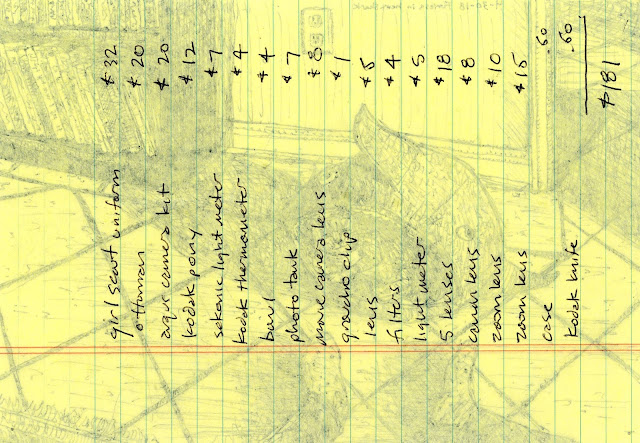 girl scout uniform $32
ottoman $20
argus camera kit $20
kodak pony $12
sekonic light meter $7
kodak thermometer $4
bowl $4
photo tank $7
movie camera lens $8
groucho clip $1
lens $5
filters $4
light meter $5
5 lenses $18
canon lens $8
zoom lens $10
zoom lens $15
case .50
kodak knife .50
$181